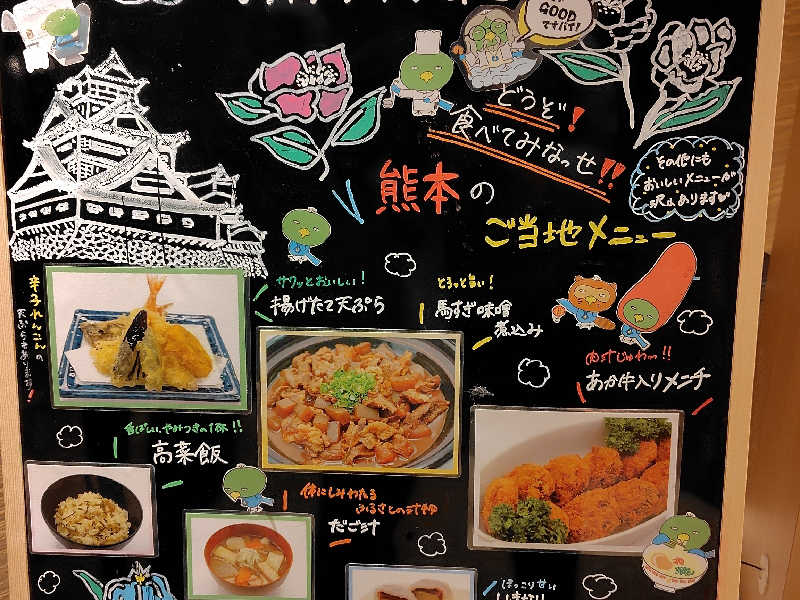 GOOD
ですバイ!
どうぞ!
食べてみなっせ!!
その他にも
おいしいメニューが
沢山あります
熊本の
ご当地メニュー
サクッとおいしい!
揚げたて天ぷら
辛子れんこんの
天ぷらもあります!
とろっと旨い!
馬すじ味噌
煮込み
肉汁じゅわっ!!
あか牛入りメンチ
香ばしい、やみつきの1杯!!
高菜飯
体にしみわたる
ふるさとの汁物
だご汁
ほっこり甘い